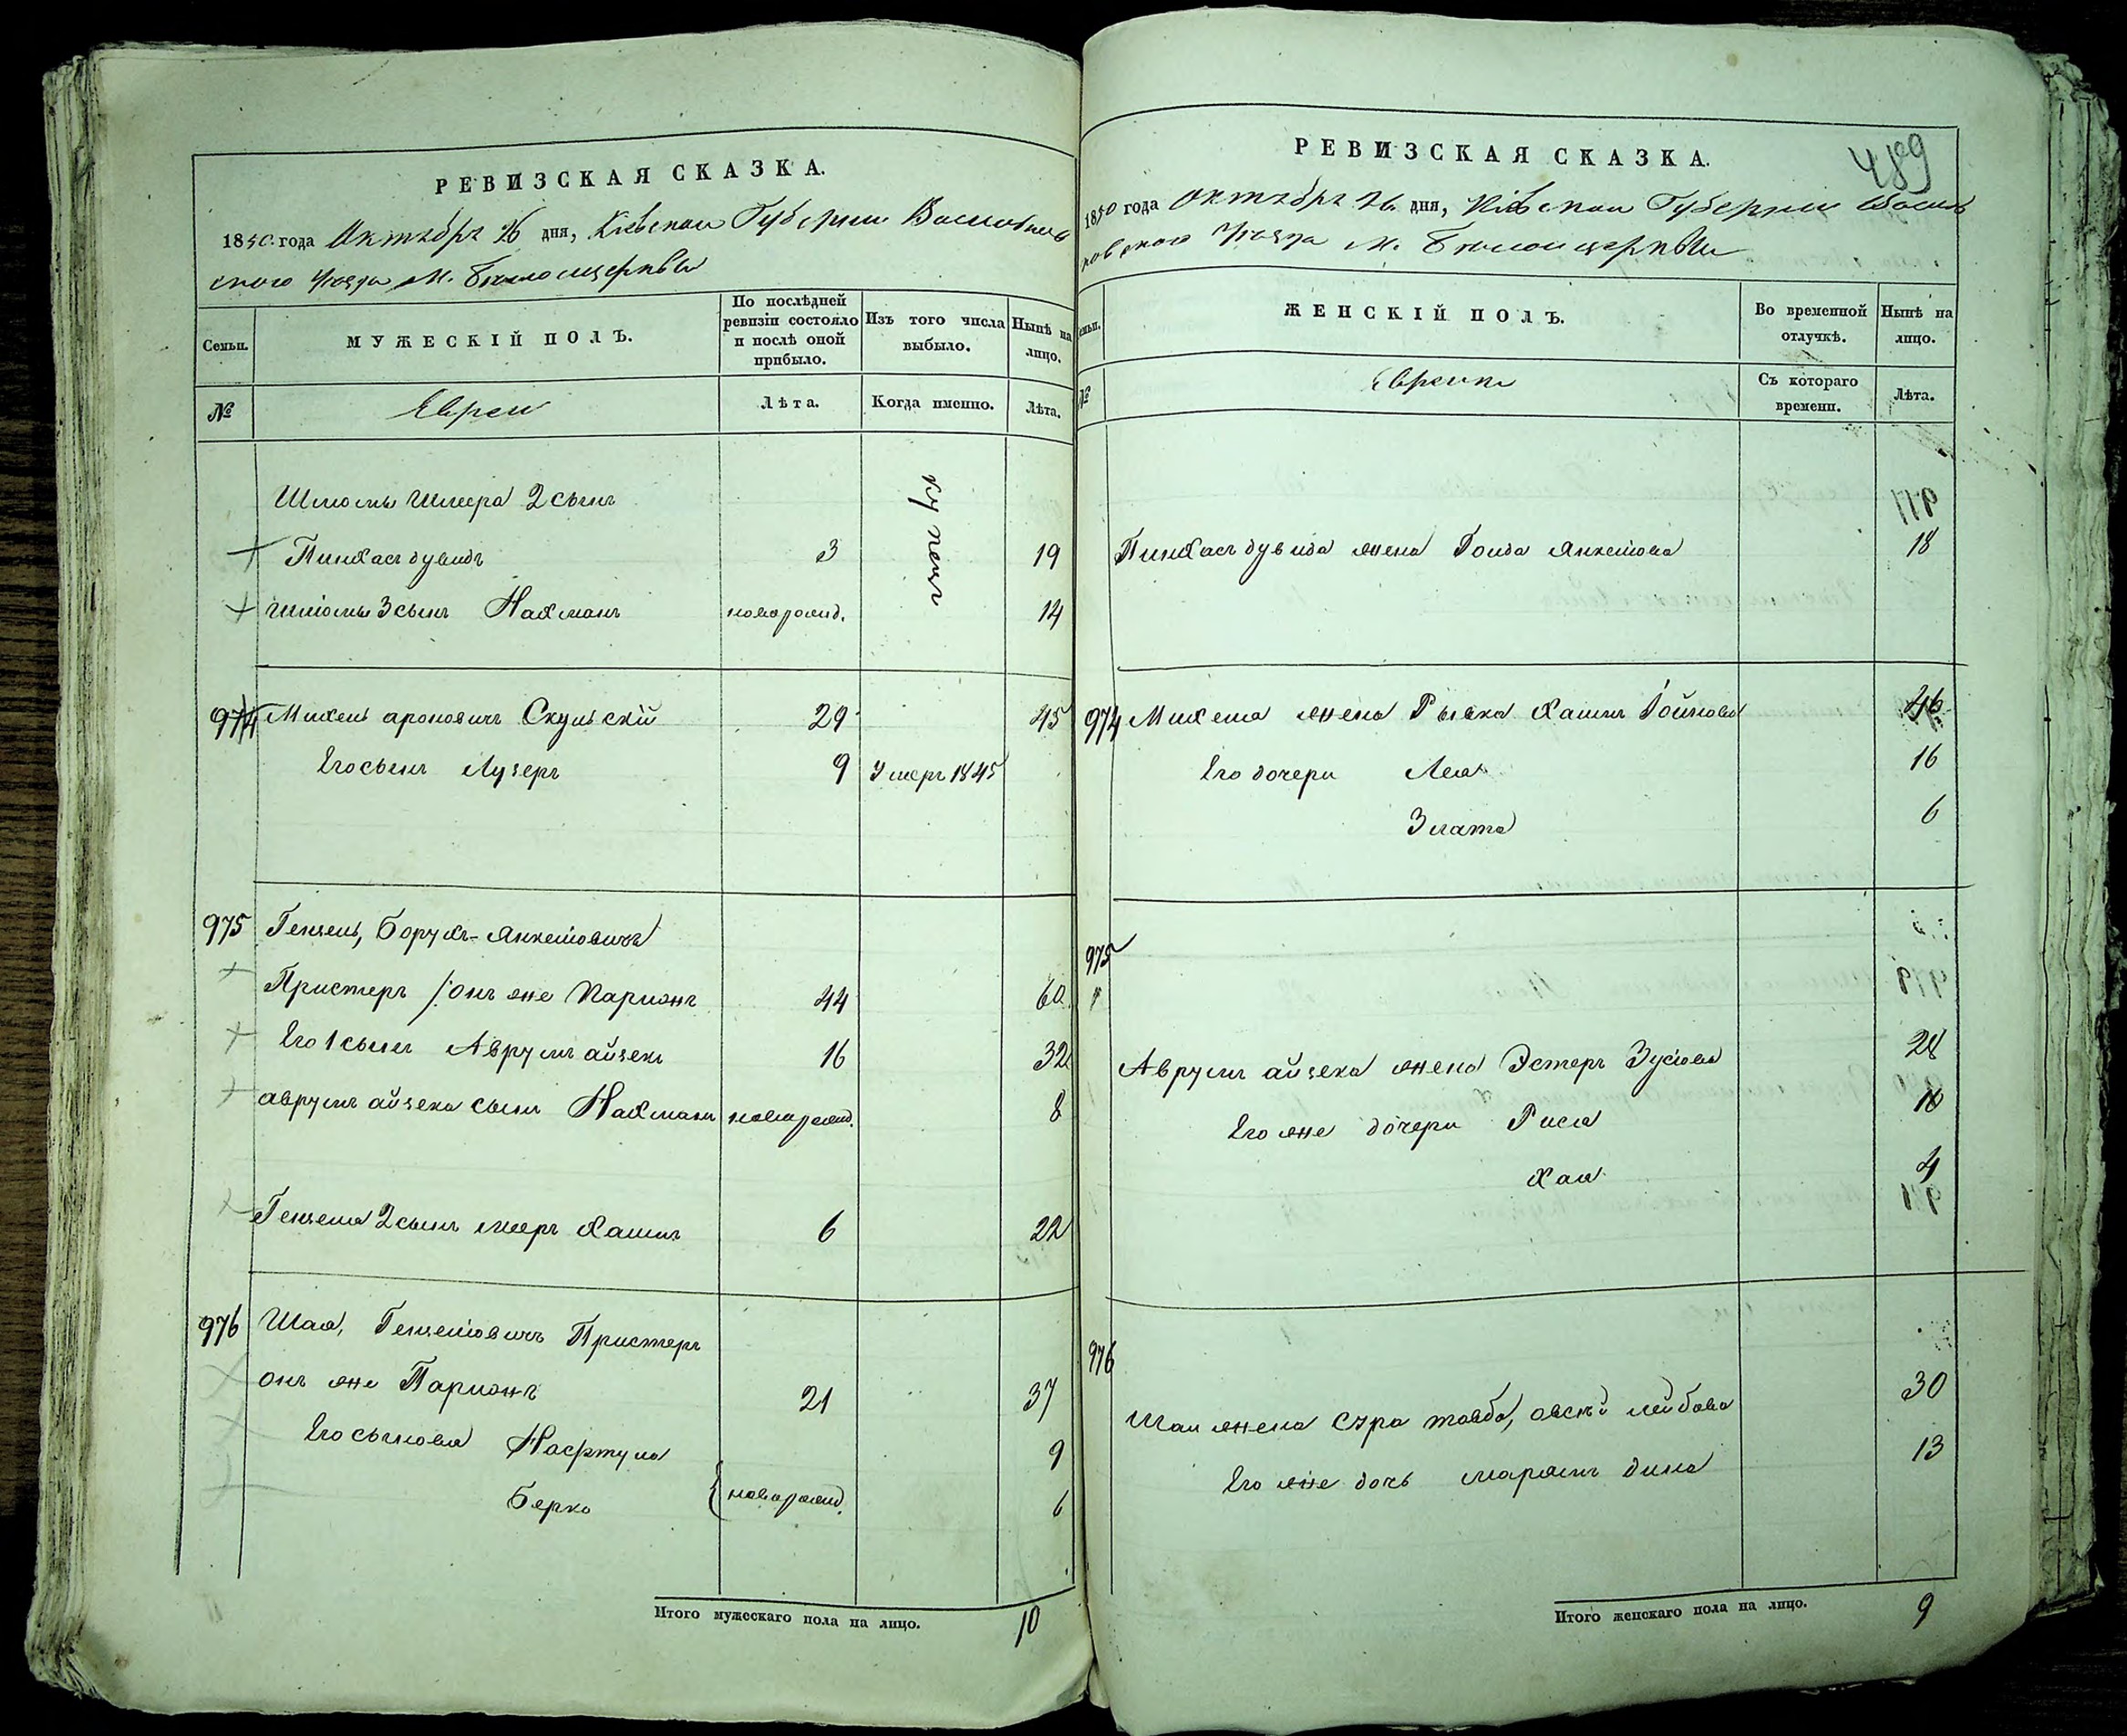 РЕВИЗСКАЯ СКАЗКА.
1850 года Октября 26 дня, Кіевской Губерніи Васильков
ского Уезда М. Белой церкви
Семьи.
МУЖЕСКІЙ ПОЛЪ.
По послѣдней ревизіи состояло и послѣ оной прибыло.
Изъ того числа выбыло.
Нынѣ на лицо.
№
Евреи
Лѣта.
Когда именно.
Лѣта.
Шлiомы Шмера 2 сынъ
Пинхасъ дувидъ 3 19
Шлiомы 3 сынъ Нахманъ новорожд. 14
купецъ
974 Михель ароновичъ Сквирскій 29 45
Его сынъ Лузеръ 9 Умеръ 1845
975 Гецель, Борухъ-Янкелiовичъ
Пристеръ / онъ же Парижъ 44 60
Его 1 сынъ Аврумъ айзекъ 16 32
аврумъ айзека сынъ Нахманъ новорожд. 8
Гецеля 2 сынъ меер Хаимъ 6 22
976 Шая, Гецелiовичъ Пристеръ
онъ же Парижъ 21 37
Его сыновья Нафтула 9
Берко { новорожд. 6
Итого мужескаго пола на лицо. 10
РЕВИЗСКАЯ СКАЗКА.
489
1850 года Октября 26 дня, Кіевской Губерніи Василь
ковского Уезда М. Белой церкви
Семьи.
ЖЕНСКІЙ ПОЛЪ.
Во временной отлучкѣ.
Нынѣ на лицо.
№
Еврейки
Съ котораго времени.
Лѣта.
Пинхасъ дувида жена Гоида Янкелiова 18
974 Михеля жена Рывка Хаимъ 46
Его дочери Лея 16
Злата 6
975
Аврумъ айзека жена Эстеръ Зусiова 28
Его же дочери Рися 10
Хая 4
976
Шаи жена сура тавба, лейбова 30
Его же дочь марьямъ дина 13
Итого женскаго пола на лицо. 9